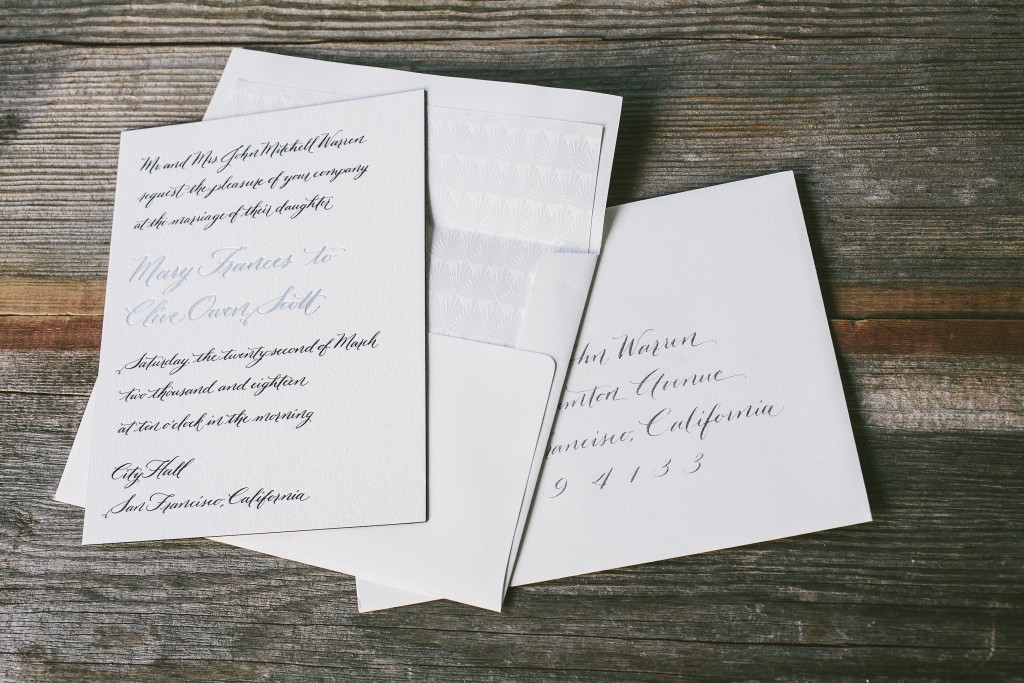 Mr. and Mrs. John Mitchell Warren
request the pleasure of your company
at the marriage of their daughter
Mary Frances to
Clive Owen Scott
Saturday, the twenty second of March
two thousand and eighteen
at ten o'clock in the morning
City Hall
San Francisco, California
Warren
Avenue
California
94133